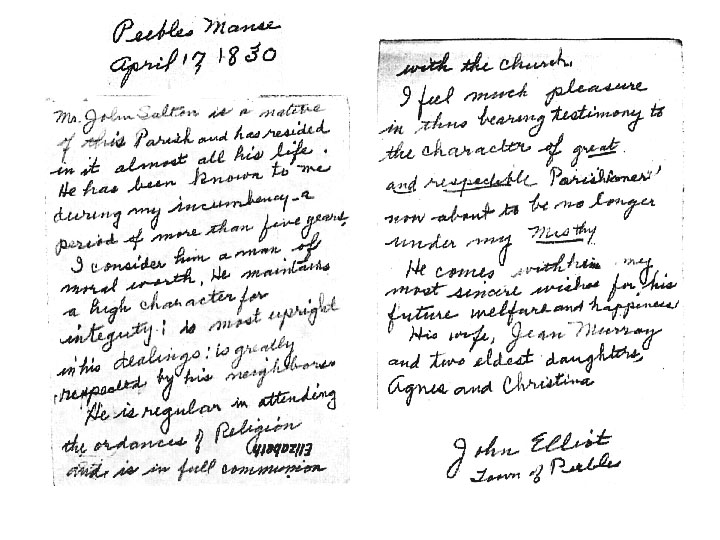 Peebles Manse
April 17, 1830
Mr. John Salton is a native
of this Parish and has resided
in it almost all his life.
He has been known to me
during my incumbency - a
period of more than five years,
I consider him a man of
moral worth. He maintains
a high character for
integuty: is most upright
in his dealings: is greatly
respected by his neighbors
He is regular in attending
the ordances of Religion
Elizabeth
and is in full communion
with the church.
I feel much pleasure
in thus bearing testimony to
the character of great
and respectable Parishioner
now about to be no longer
under my
He comes with him my
most sincere wishes for his
future welfare and happiness
His wife, Jean Murray
and two eldest daughters,
Agnes and Christina
John Elliot
Town of Peebles